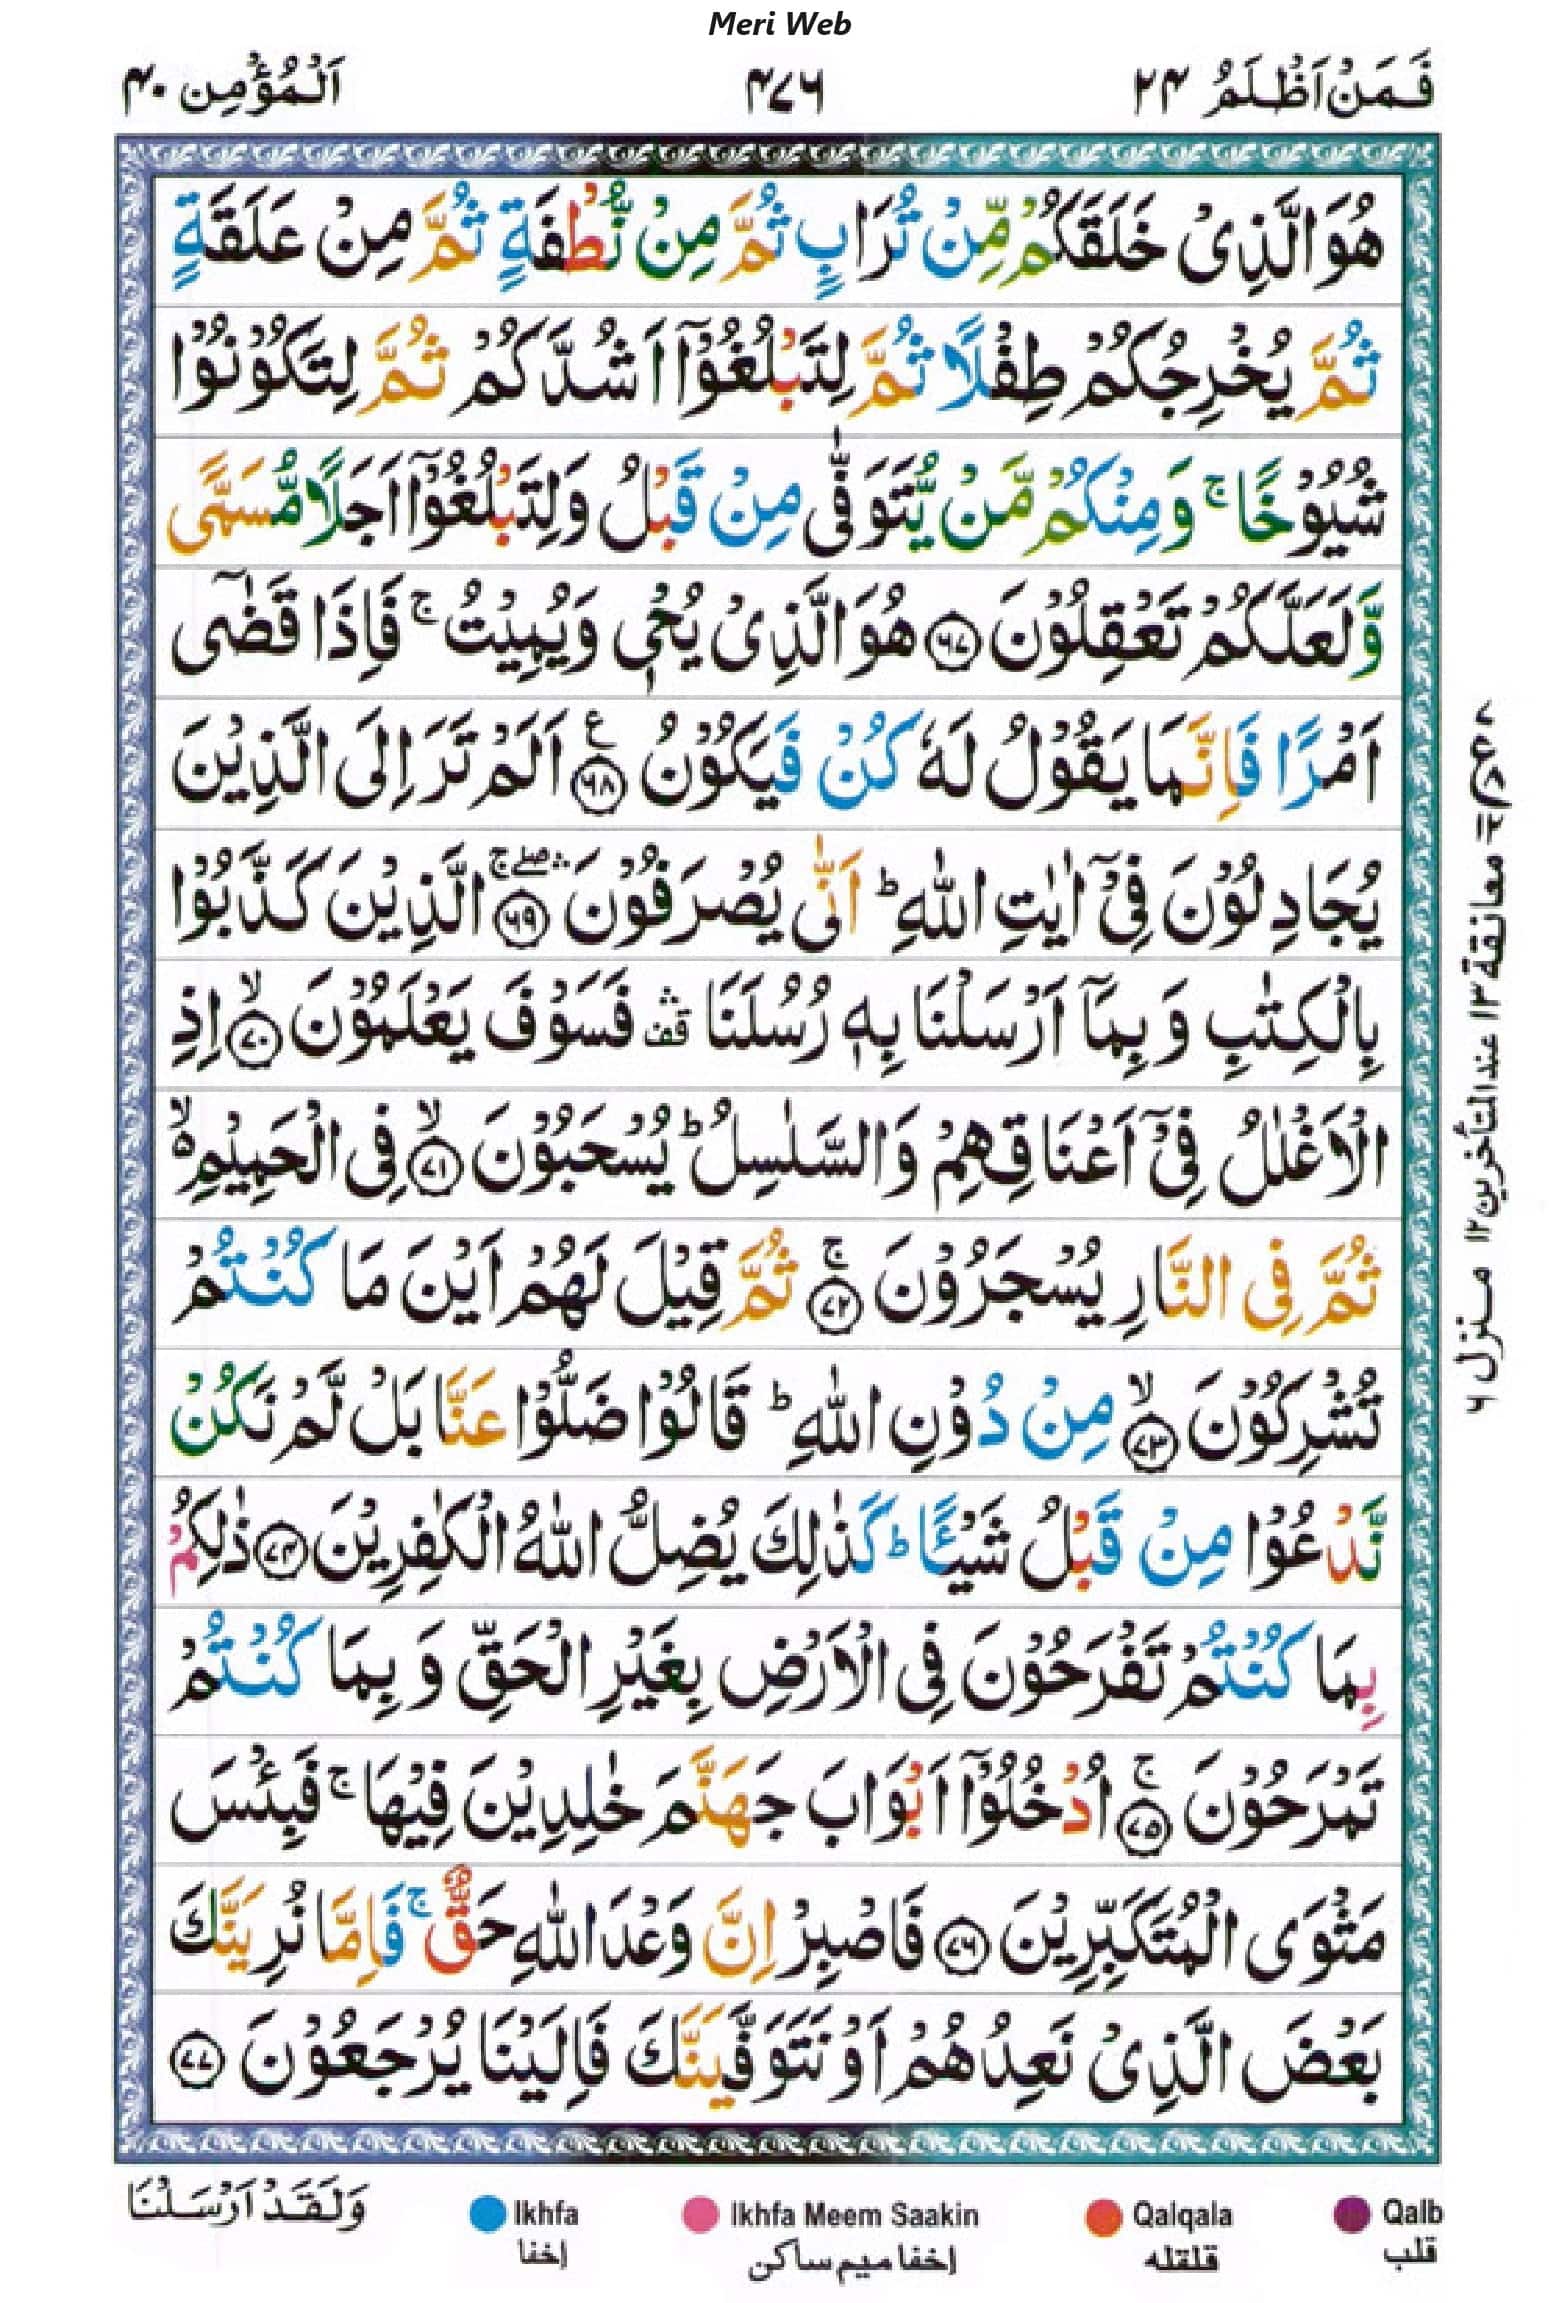 Meri Web
فَمَنْ اَظْلَمُ ۲۴
۴۷۶
اَلْمُؤْمِن ۴۰
هُوَ الَّذِیْ خَلَقَكُمْ مِّنْ تُرَابٍ ثُمَّ مِنْ نُّطْفَةٍ ثُمَّ مِنْ عَلَقَةٍ
ثُمَّ یُخْرِجُكُمْ طِفْلًا ثُمَّ لِتَبْلُغُوْۤا اَشُدَّكُمْ ثُمَّ لِتَكُوْنُوْا
شُیُوْخًا ۚ وَمِنْكُمْ مَّنْ یُّتَوَفّٰی مِنْ قَبْلُ وَلِتَبْلُغُوْۤا اَجَلًا مُّسَمًّی
وَّلَعَلَّكُمْ تَعْقِلُوْنَ ﴿۶۷﴾ هُوَ الَّذِیْ یُحْیٖ وَیُمِیْتُ ۚ فَاِذَا قَضٰۤی
اَمْرًا فَاِنَّمَا یَقُوْلُ لَهٗ كُنْ فَیَكُوْنُ ﴿۶۸﴾ ع اَلَمْ تَرَ اِلَی الَّذِیْنَ
یُجَادِلُوْنَ فِیْۤ اٰیٰتِ اللّٰهِ ؕ اَنّٰی یُصْرَفُوْنَ ﴿۶۹﴾ ۛۖۚ الَّذِیْنَ كَذَّبُوْا
بِالْكِتٰبِ وَ بِمَاۤ اَرْسَلْنَا بِهٖ رُسُلَنَا ۛ قف فَسَوْفَ یَعْلَمُوْنَ ﴿۷۰﴾ ۙ اِذِ
الْاَغْلٰلُ فِیْۤ اَعْنَاقِهِمْ وَالسَّلٰسِلُ ؕ یُسْحَبُوْنَ ﴿۷۱﴾ ۙ فِی الْحَمِیْمِ ۙ۬
ثُمَّ فِی النَّارِ یُسْجَرُوْنَ ﴿۷۲﴾ ۚ ثُمَّ قِیْلَ لَهُمْ اَیْنَ مَا كُنْتُمْ
تُشْرِكُوْنَ ﴿۷۳﴾ ۙ مِنْ دُوْنِ اللّٰهِ ؕ قَالُوْا ضَلُّوْا عَنَّا بَلْ لَّمْ نَكُنْ
نَّدْعُوْا مِنْ قَبْلُ شَیْـًٔا ؕ كَذٰلِكَ یُضِلُّ اللّٰهُ الْكٰفِرِیْنَ ﴿۷۴﴾ ذٰلِكُمْ
بِمَا كُنْتُمْ تَفْرَحُوْنَ فِی الْاَرْضِ بِغَیْرِ الْحَقِّ وَ بِمَا كُنْتُمْ
تَمْرَحُوْنَ ﴿۷۵﴾ ۚ اُدْخُلُوْۤا اَبْوَابَ جَهَنَّمَ خٰلِدِیْنَ فِیْهَا ۚ فَبِئْسَ
مَثْوَی الْمُتَكَبِّرِیْنَ ﴿۷۶﴾ فَاصْبِرْ اِنَّ وَعْدَ اللّٰهِ حَقٌّ ۚ فَاِمَّا نُرِیَنَّكَ
بَعْضَ الَّذِیْ نَعِدُهُمْ اَوْ نَتَوَفَّیَنَّكَ فَاِلَیْنَا یُرْجَعُوْنَ ﴿۷۷﴾
معانقة ۱۳ عند المتأخرین ۱۲ منزل ۶
وَلَقَدْ اَرْسَلْنَا
Ikhfa
إخفا
Ikhfa Meem Saakin
إخفا میم ساکن
Qalqala
قلقله
Qalb
قلب